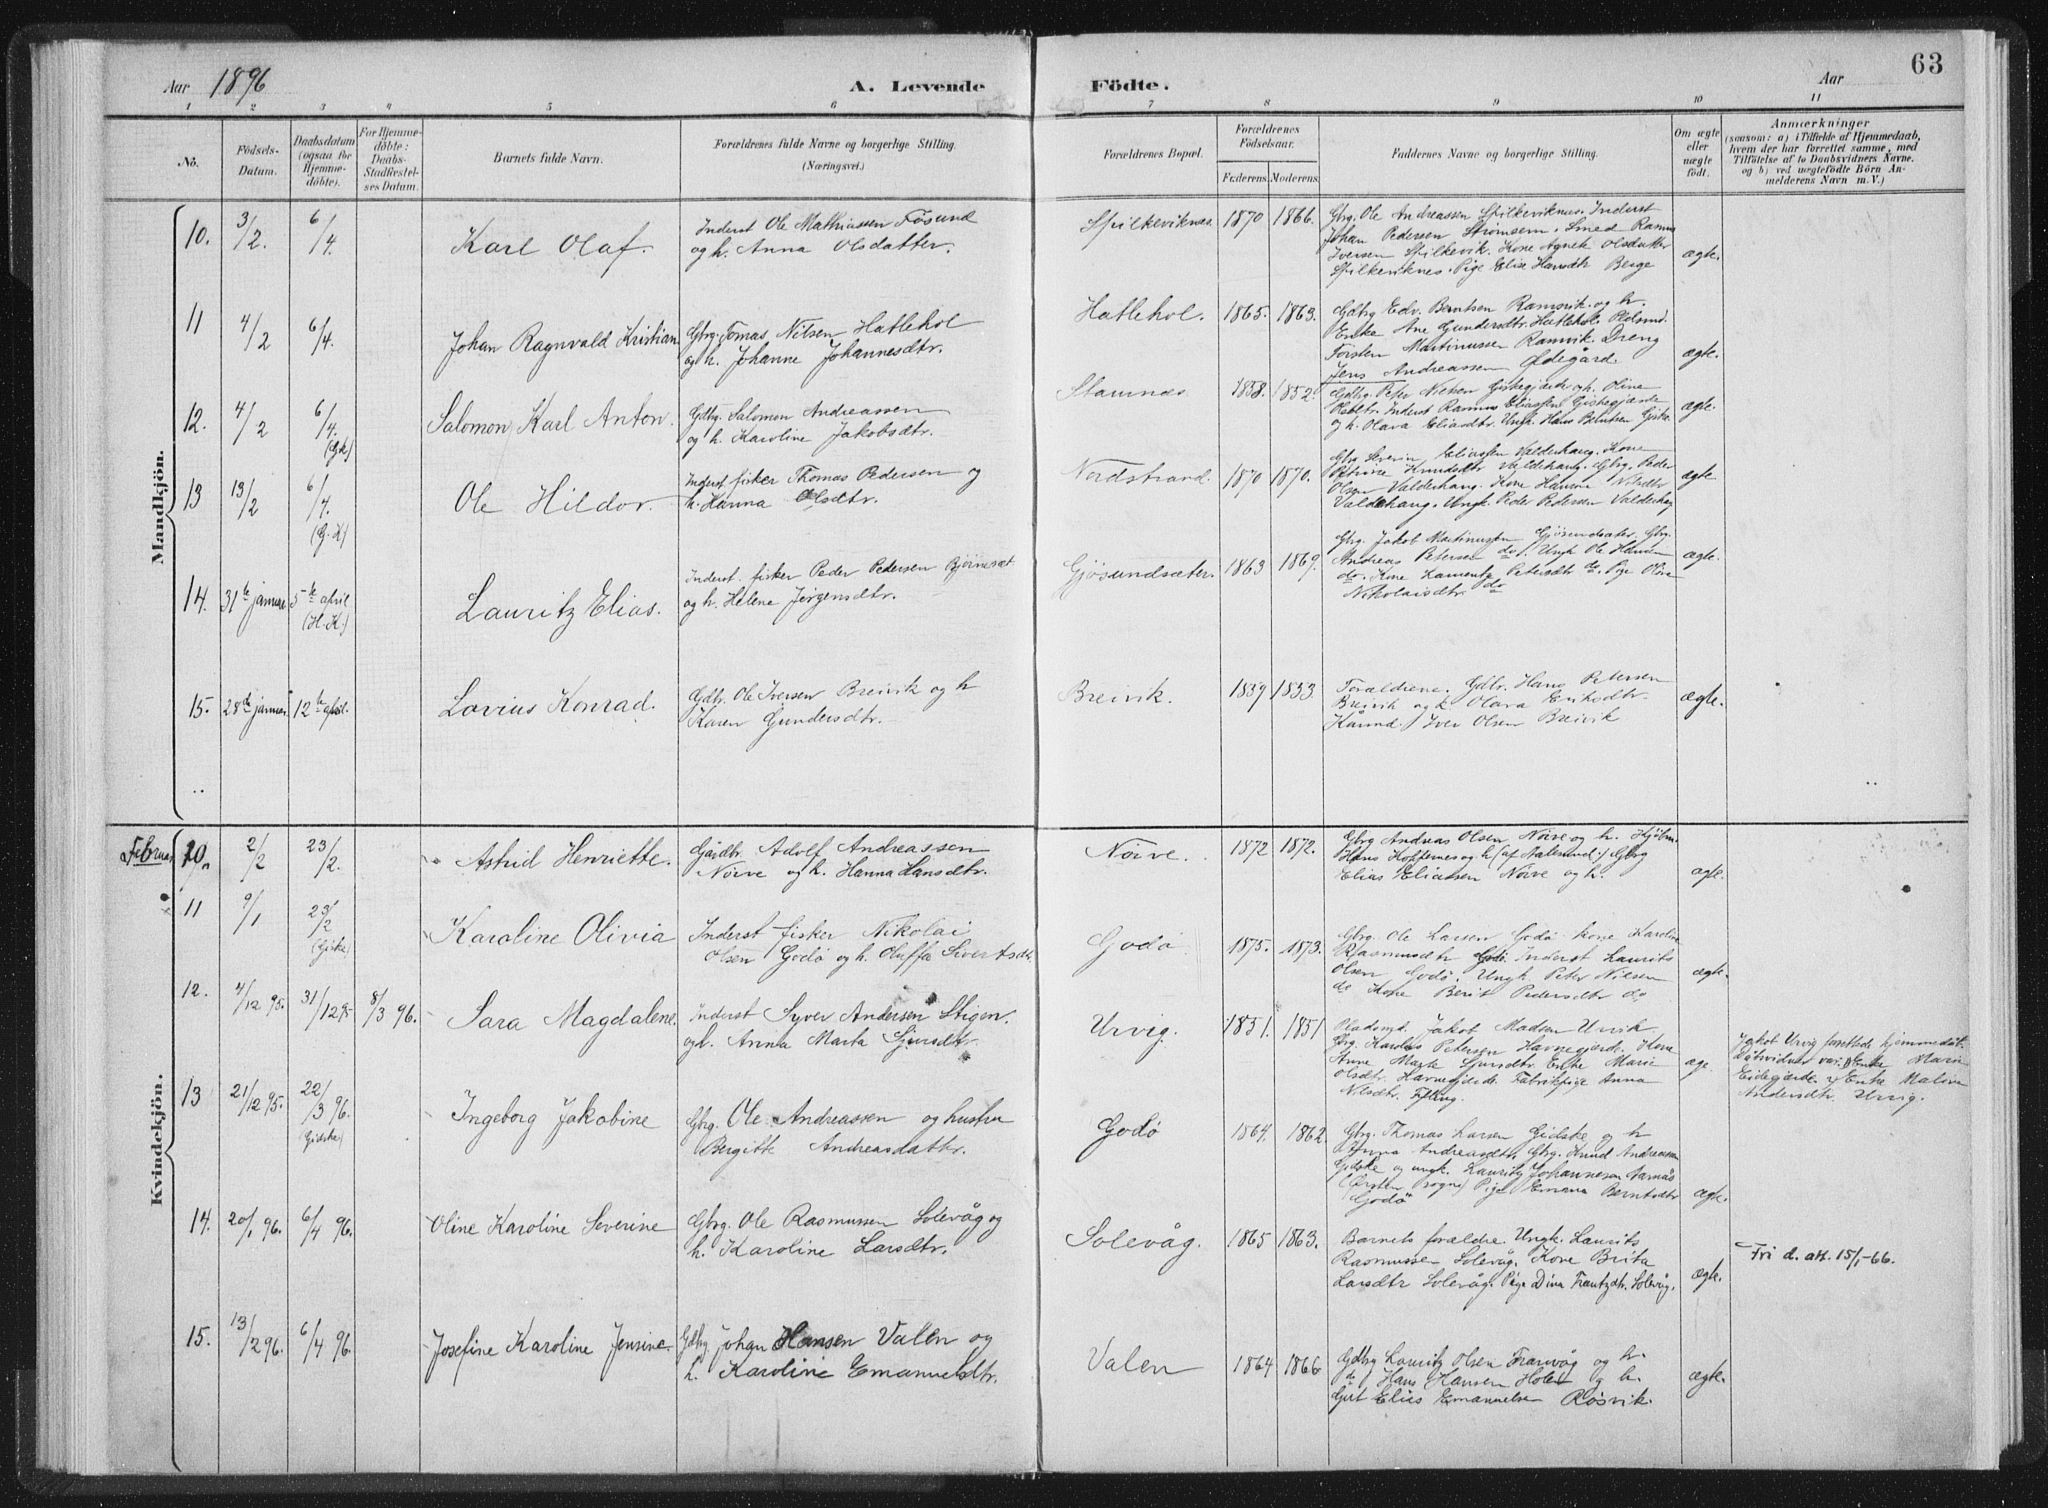 Aar 1896
A. Levende
Födte.
Aar
63
1 2 3 4 5 6 7 8 9 10 11
No.
Födsels-Datum.
Daabsdatum (ogsaa for Hjemmedöbte).
For Hjemmedöbte: Daabs-Stadfestelses Datum.
Barnets fulde Navn.
Forældrenes fulde Navne og borgerlige Stilling.
(Næringsvei.)
Forældrenes Bopæl.
Forældrenes Födselsaar.
Faderens. Moderens.
Faddernes Navne og borgerlige Stilling.
Om ægte eller uægte födt.
Anmærkninger
(saasom: a) i Tilfælde af Hjemmedaab, hvem der har forrettet samme, med Tilföielse af to Daabsvidners Navne, og b) ved uægtefödte Börn Anmelderens Navn m. V.)
Mandkjön.
10. 3/2. 6/4. Karl Olaf.
Inderst Ole Mathiassen Fösund
og h. Anna Olsdatter.
Spilkeviknes. 1870 1866.
Gbrg. Ole Andreassen Spilkeviknes. Inderst
Johan Pedersen Strömsem. Smed Rasmus
Iversen Spilkevik. Kone Agnete Olsdatter
Spilkeviknes. Pige Elise Hansdtr Berge
ægte.
11 4/2 6/4. Johan Ragnvald Kristian
Gbrg. Tomas Nilsen Hatlehol
og h. Johanne Johannesdtr.
Hatlehol. 1865. 1863.
Gdbrg Edv. Berntsen Ramsvik og h.
Enke Ane Gundersdtr. Hatlehole
Torsten Martinussen Ramvik. Dreng
Jens Andreassen Ødegård.
ægte.
12. 4/2 6/4. (Gk) Salomon Karl Anton.
Gdbg. Salomon Andreassen
og h. Karoline Jakobsdtr.
Staurnes 1858. 1852.
Gdbrg. Peter Nielsen Giskegjærde og h. Oline
Inderst Rasmus Eliassen Giskegjærde
og h. Olava Eliasdtr. Ungk. Hans Berntsen Giske.
ægte.
13 13/2 6/4. (G.K) Ole Hildor.
Inderst fisker Thomas Pedersen og
h. Hanna Olsdtr.
Nordstrand. 1870 1870.
Gbrg Severin Eliassen Valderhaug. Kone
Petrine Knudsdtr Valderhaug. Gbrg. Peder
Olsen Valderhaug. Kone Hansine Nilsdtr
Valderhaug. Ungk. Peder Pedersen Valderhaug
ægte
14. 31te januar 5te april (H.K.) Lauritz Elias.
Inderst. fisker Peder Pedersen Björneset
og h. Helene Jörgensdtr.
Gjösundsæter. 1863 1869.
Gbrg. Jakob Martinussen Gjösundsæter. Gbrg.
Andreas Petersen do. Ungk Ole Hansen
do. Kone Lamentze Petersdtr Pige Oline
Nikolaisdtr. do
ægte.
15. 28de januar 12te april. Lovius Konrad.
Gdbr. Ole Iversen Breivik og h
Karen Gundersdtr.
Breivik. 1839 1853
Forældrene. Gdbr. Hans Petersen
Breivik og h. Olava Eriksdtr.
Iver Olsen Breivik
ægte.
Kvindekjön.
Februar
10. 2/2 23/2. Astrid Henriette.
Gårdbr. Adolf Andreassen
Nörve og h. Hanna Hansdtr.
Nörve. 1872 1872.
Gbrg Andreas Olsen Nörve og h.
Hans Koppernes og h (af Aalesund:) Gbrg
Elias Eliassen Nörve og h.
ægte.
11 9/1 23/2 (Giske) Karoline Olivia
Inderst fisker Nikolai
Olsen Godö og h. Oluffa Sivertsdtr.
Godö 1875. 1873.
Gbrg. Ole Larsen Godö. Kone Karoline
Rasmusdtr Godö. Inderst Laurits
Olsen Godö. Ungk Peter Nilsen
do Kone Berit Pedersdtr do
ægte.
12. 4/12 95. 31/12 95 8/3 96. Sara Magdalene.
Inderst Syver Andersen Stigen.
og h. Anna Marta Sjursdtr.
Urvig. 1851. 1851
Pladsmd. Jakob Madsen Urvik.
Gbrg. Karolus Petersen Havnegjærde. Kone
Anne Marta Sjursdtr. Enke Marie
Olsdtr. Havnegjærde. Fabrikpige Anna
Nilsdtr.
æge.
Jakob Urvig forettede hjemmedåb.
Dåbsvidner var: Enke Marie
Eidegjærde & Enke Malene
Andersdtr. Urvig.
13 21/12 95. 22/3 96. (Gidske) Ingeborg Jakobine
Gbrg. Ole Andreassen og hustru
Bergitte Andreasdatter.
Godö 1864. 1862.
Gbrg. Thomas Larsen Gidske og h
Anna Andreasdtr. Gbrg. Knud Andreassen
Gidske og ungk. Lauritz Johannesen Aarnäs
(Örsten sogn) Pige Emma Berntsdtr
Godö
ægte.
14. 20/1 96. 6/4 96. Oline Karoline Severine
Gbrg. Ole Rasmussen Solevåg og
h. Karoline Larsdtr.
Solevåg. 1865 1863.
Barnets forældre. Ungk. Laurits
Rasmussen Solevåg. Kone Brita
Larsdtr Solevåg. Pige Dina Frantzdtr. Solevåg.
ægte.
Fri d. att. 15/1-66.
15. 13/2 96. 6/4 96. Josefine Karoline Jensine
Gdbg Johan Hansen Valen og
h. Karoline Emanuelsdtr.
Valen 1864 1866
Gdbrg Lauritz Olsen Tranvåg og h.
do Hans Hansen Holen og h.
Gift Elias Emanuelsen Rösvik.
ægte.